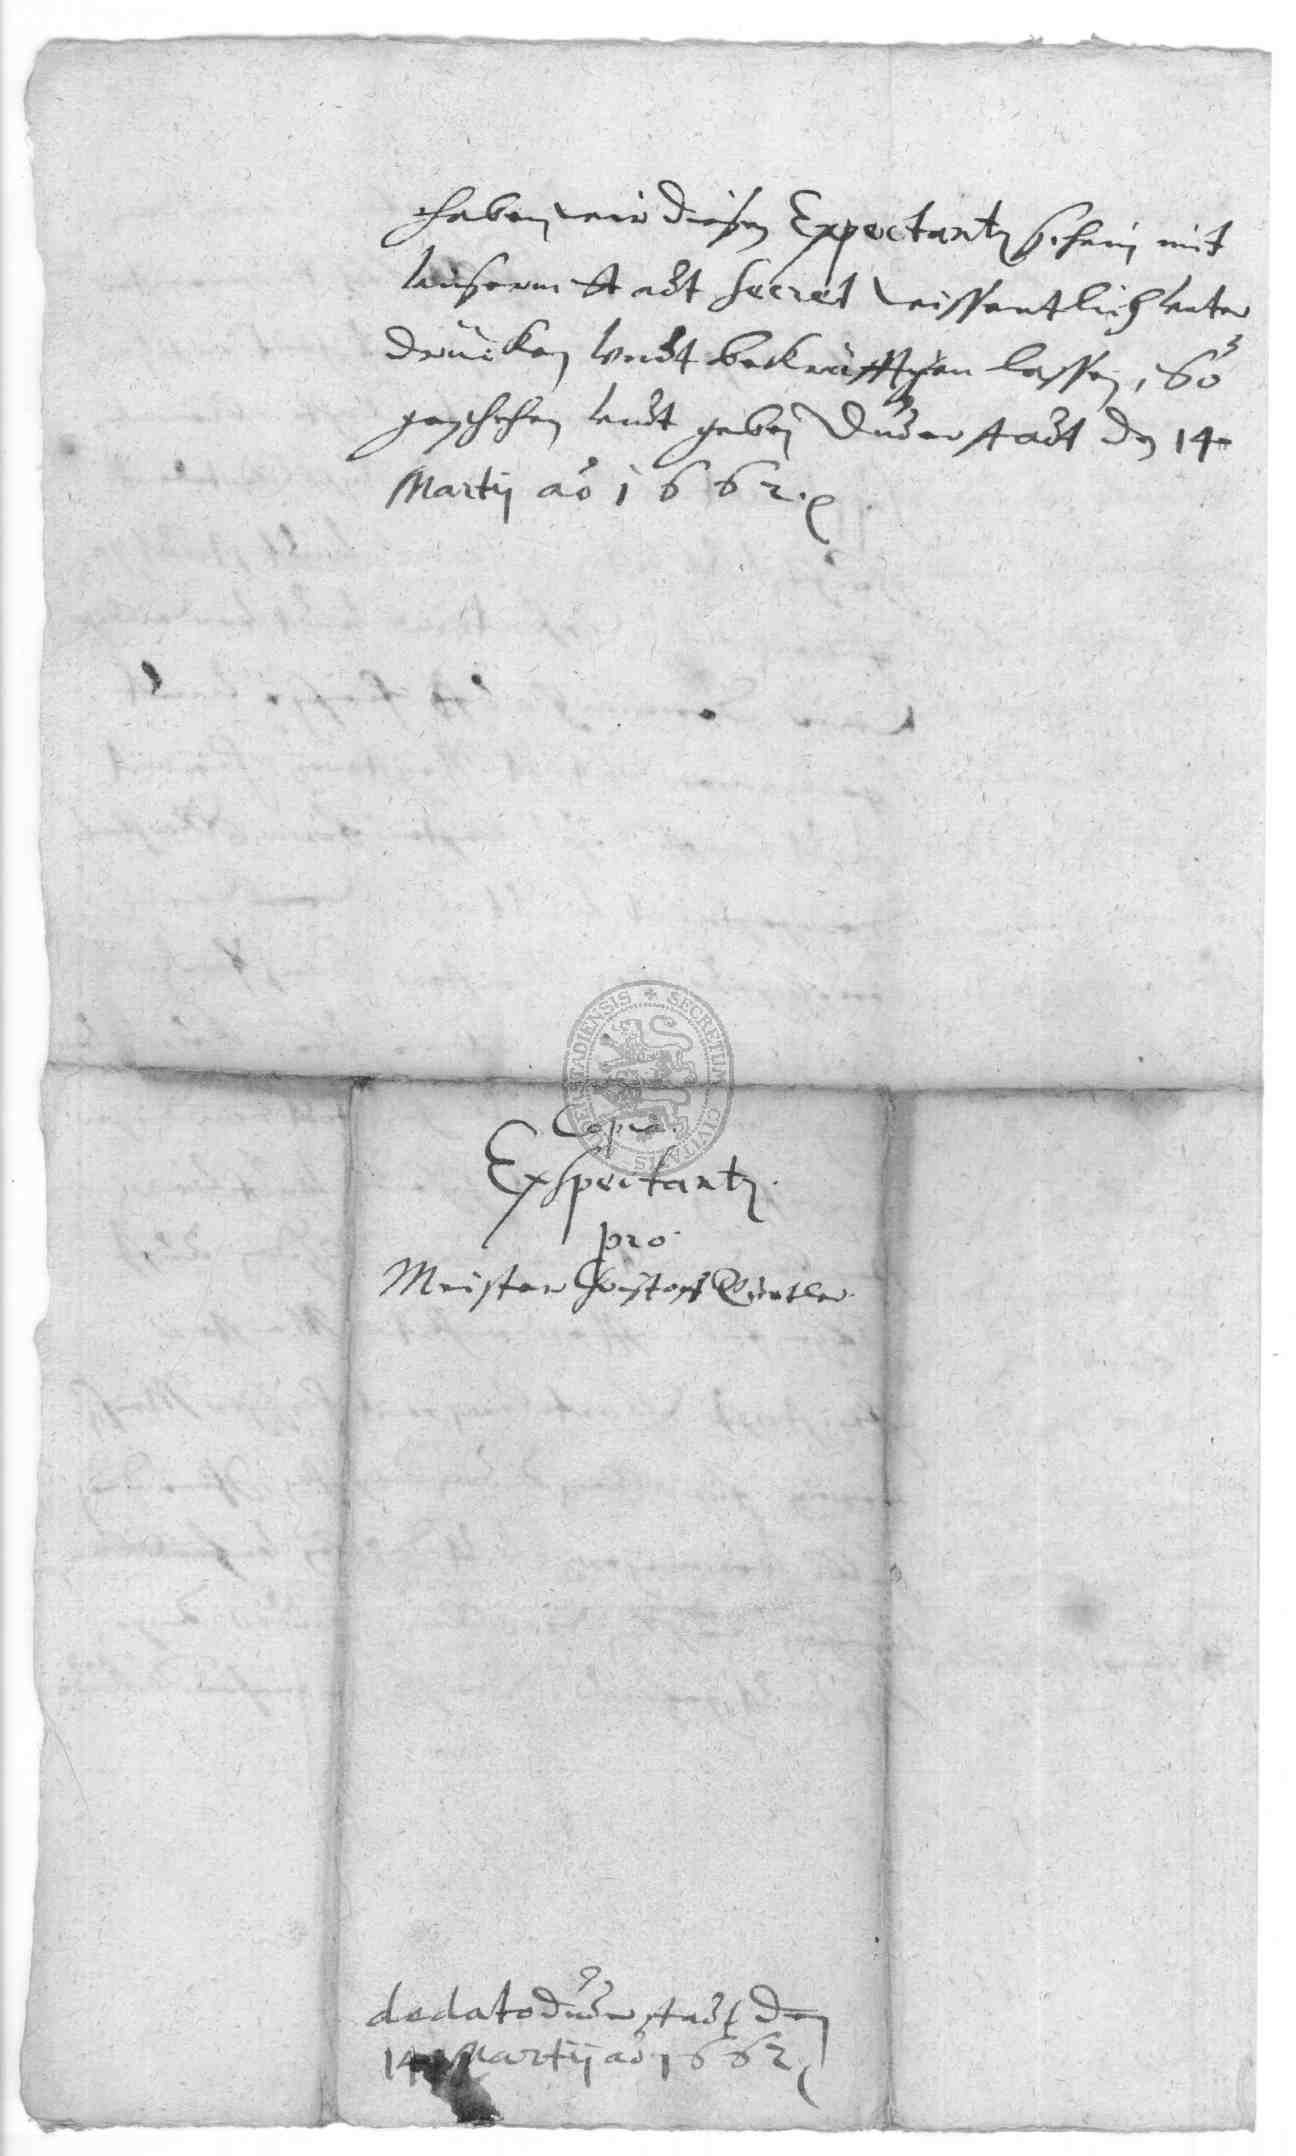 haben wir diesen Expectantz schein mit
unserm Stadt Secret wissentlich unter
drücken undt bekräfftigen lassen, So
geschehen undt geben Duderstadt den 14
Martij ao 1662.
SECRETUM CIVITATIS DUDERSTADIENSIS
Copia.
Exspectantz
pro
Meister Christoff
de dato Duderstadt den
14 Martij ao 1662